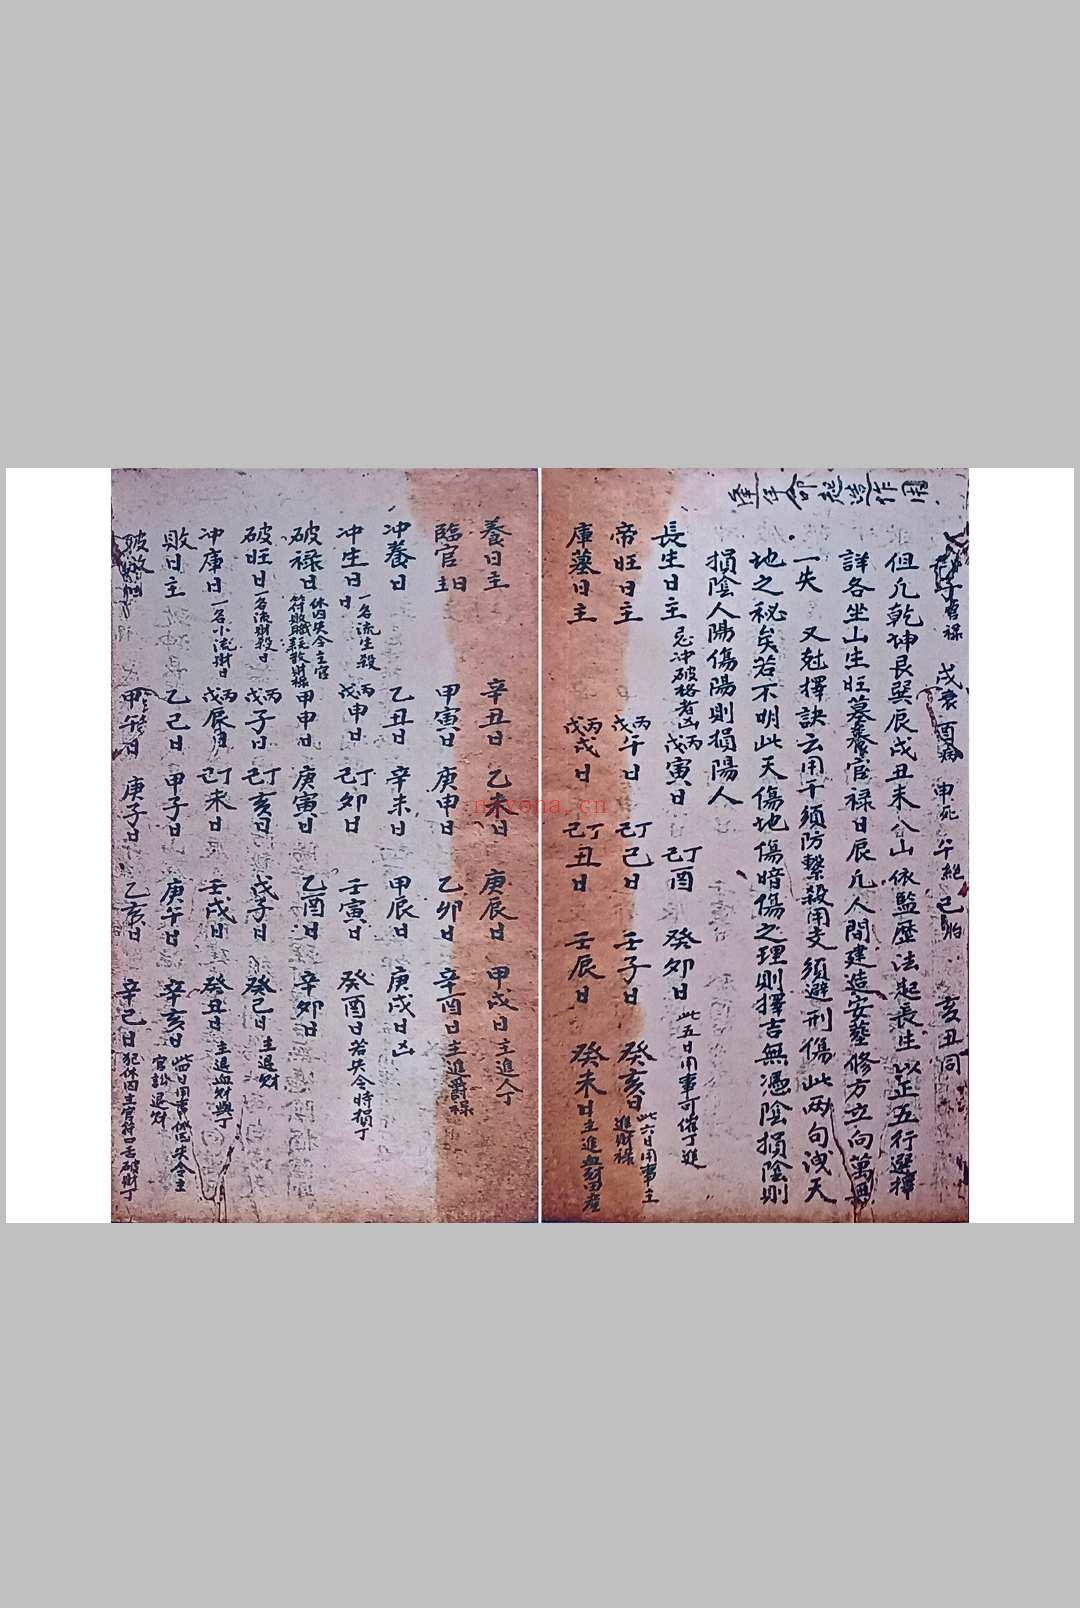 逢年命起詰作用
子官祿 戌衰 酉病 申死 午絕 巳胎 亥丑同
但凡乾坤艮巽辰戌丑未八山依監歷法起長生以正五行選擇
詳各坐山生旺墓養官祿日辰凡人間建造安塟修方立向萬無
一失 又尅擇訣云用干須防繫殺用支須避刑傷此兩句洩天
地之秘矣若不明此天傷地傷暗傷之理則擇吉無憑陰損陰則
損陰人陽傷陽則損陽人
長生日主 忌冲破格者凶 丙戊寅日 丁己酉 癸卯日 此五日用事可催丁進
帝旺日主 丙戊午日 丁己巳日 壬子日 癸亥日 此六日用事主進財祿
庫墓日主 丙戊戌日 丁己丑日 壬辰日 癸未日 主進血財田產
養日主 辛丑日 乙未日 庚辰日 甲戌日 主進人丁
臨官日主 甲寅日 庚申日 乙卯日 辛酉日 主進爵祿
冲養日 乙丑日 辛未日 甲辰日 庚戌日 凶
冲生日 一名流生殺日 丙戊申日 丁己卯日 壬寅日 癸酉日 若失令時損丁
破祿日 休囚失令主官符敗賊耗散財祿 甲申日 庚寅日 乙酉日 辛卯日
破旺日 一名流財殺日 丙戊子日 丁己亥日 戊子日 癸巳日 主退財
冲庫日 一名小流財日 丙戊辰日 丁己未日 壬戌日 癸丑日 主退血財與丁
敗日主 乙巳日 甲子日 庚午日 辛亥日 此日用事休囚失令主官訟退財
破敗 甲午日 庚子日 乙亥日 辛巳日 犯休囚主官符口舌破財丁
nayona.cn